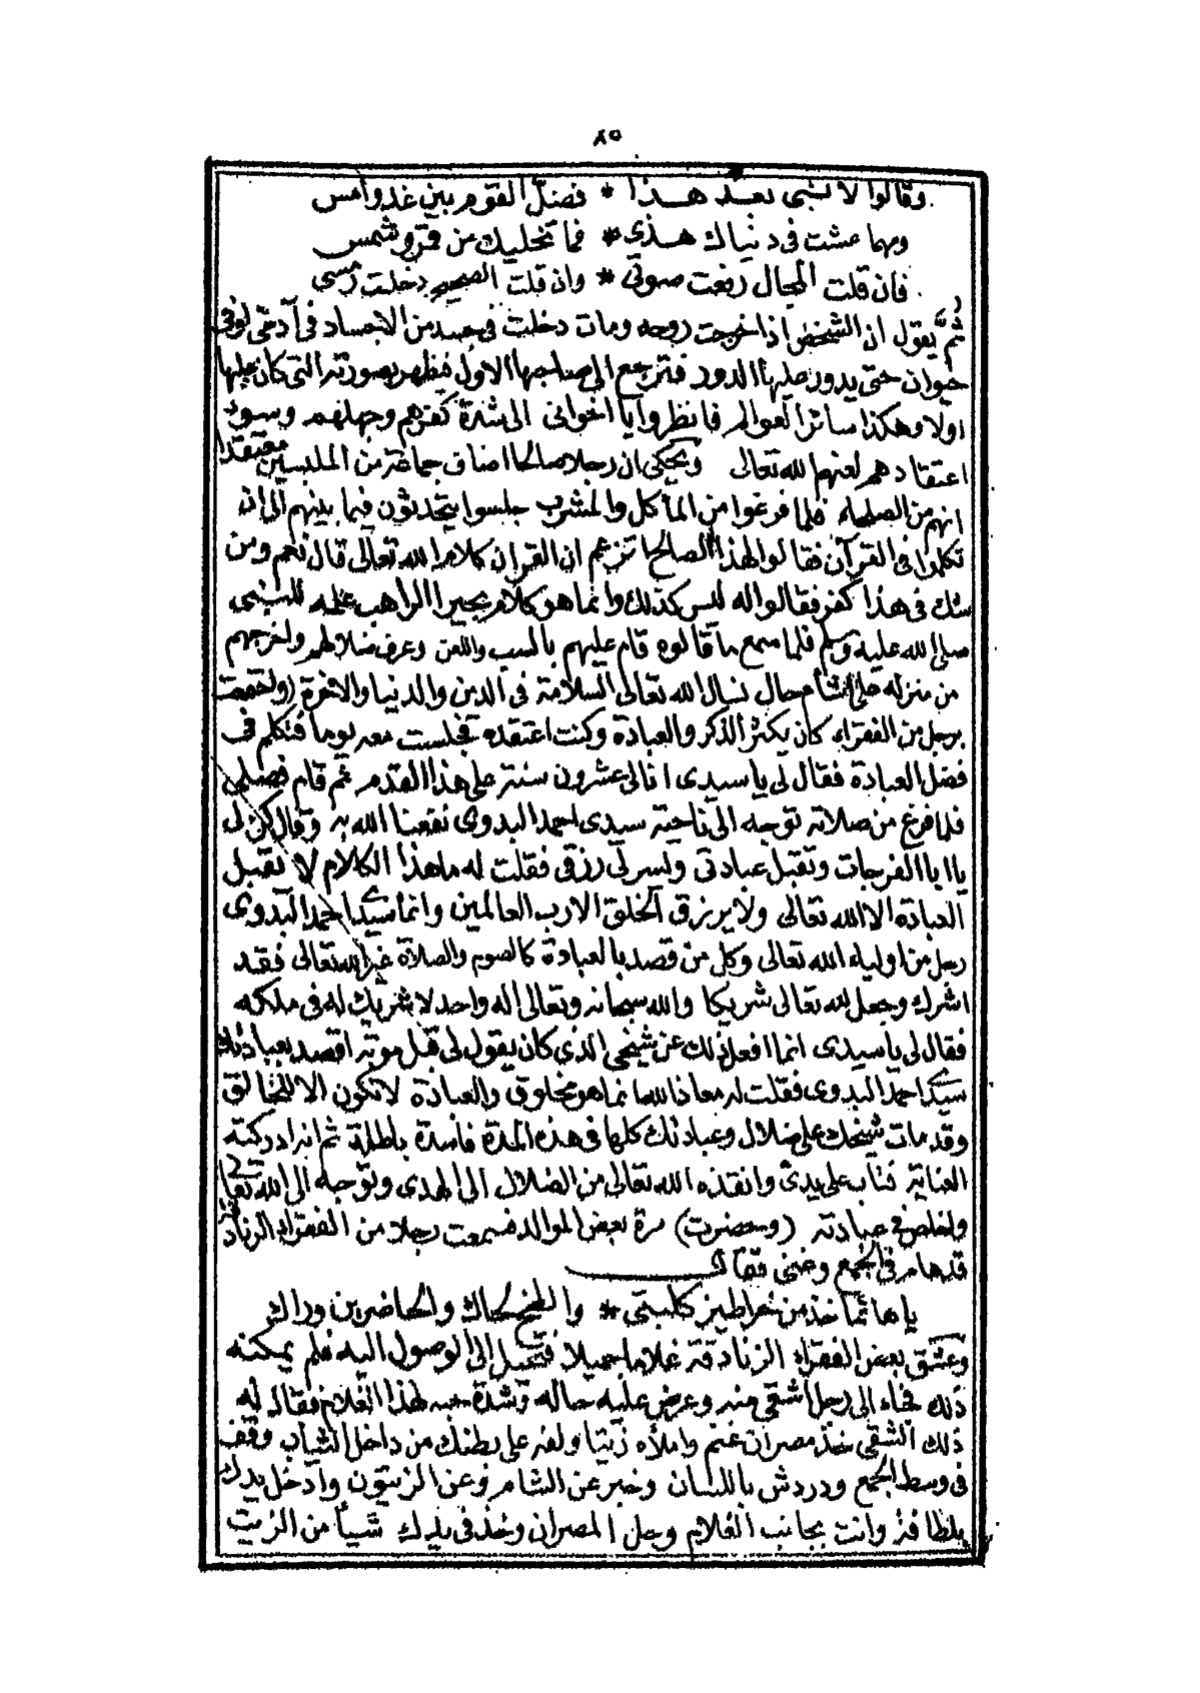 ٨٥
وقالوا لا نبى بعد هذا * فضل القوم بين غد وامس
ومهما عشت فى دنياك هذى * فما تخليك من قمر وشمس
فان قلت المحال رفعت صوتى * وان قلت الصحيح دخلت رمسى
ثم يقول ان الشخص اذا خرجت روحه ومات دخلت فى جسد من الاجساد فى آدمى او فى
حيوان حتى يدور عليها الدور فترجع الى صاحبها الاول فيظهر بصورته التى كان عليها
اولا وهكذا سائر العوالم فانظروا يا اخوانى الى شدة كفرهم وجهلهم وسوء
اعتقادهم لعنهم الله تعالى ويحكى ان رجلا صالحا اضاف جماعة من الملبسين معتقدا
انهم من الصلحاء فلما فرغوا من المأكل والمشرب جلسوا يتحدثون فيما بينهم الى ان
تكلموا فى القرآن فقالوا لهذا الصالح اتزعم ان القرآن كلام الله تعالى قال نعم ومن
شك فى هذا كفر فقالوا له ليس كذلك وانما هو كلام بحيرا الراهب علمه للنبى
صلى الله عليه وسلم فلما سمع ما قالوه قام عليهم بالسب واللعن وعرف ضلالهم واخرجهم
من منزله على اشأم حال نسال الله تعالى السلامة فى الدين والدنيا والآخرة (واجتمعت
برجل من الفقراء كان يكثر الذكر والعبادة وكنت اعتقده فجلست معه يوما فتكلم فى
فضل العبادة فقال لى يا سيدى انا لى عشرون سنة على هذا القدم ثم قام فصلى
فلما فرغ من صلاته توجه الى ناحية سيدى احمد البدوى نفعنا الله به وقال كن لى
يا ابا الفرجات وتقبل عبادتى ويسر لى رزقى فقلت له ما هذا الكلام لا تقبل
العبادة الا الله تعالى ولا يرزق الخلق الا رب العالمين وانما سيدى احمد البدوى
رجل من اولياء الله تعالى وكل من قصد بالعبادة كالصوم والصلاة غير الله تعالى فقد
اشرك وجعل لله تعالى شريكا والله سبحانه وتعالى اله واحد لا شريك له فى ملكه
فقال لى يا سيدى انما افعل ذلك عن شيخى الذى كان يقول لى قبل موته اقصد بعبادتك
سيدى احمد البدوى فقلت له معاذ الله انما هو مخلوق والعبادة لا تكون الا للخالق
وقد مات شيخك على ضلال وعبادتك كلها فى هذه المدة فاسدة باطلة ثم انه ادركته
العناية فتاب على يدى وانقذه الله تعالى من الضلال الى الهدى وتوجه الى الله تعالى
واخلص فى عبادته (وحضرت) مرة بعض الموالد فسمعت رجلا من الفقراء الزنادقة
قد هام فى الجمع وغنى فقال
يا هائما خذ من خراطيز كلبتى * والطخ لحاك والحاضرين وراك
وعشق بعض الفقراء الزنادقة غلاما جميلا فتحيل الى الوصول اليه فلم يمكنه
ذلك فجاء الى رجل اشقى منه وعرض عليه حاله وشدة حبه لهذا الغلام فقال له
ذلك الشقى خذ مصران غنم واملأه زيتا ولفه على بطنك من داخل الثياب وقف
فى وسط الجمع ودردش باللسان وخبر عن الشام وعن الزيتون وادخل يدك
بلطافة وانت بجانب الغلام وحل المصران وخذ فى يدك شيأ من الزيت